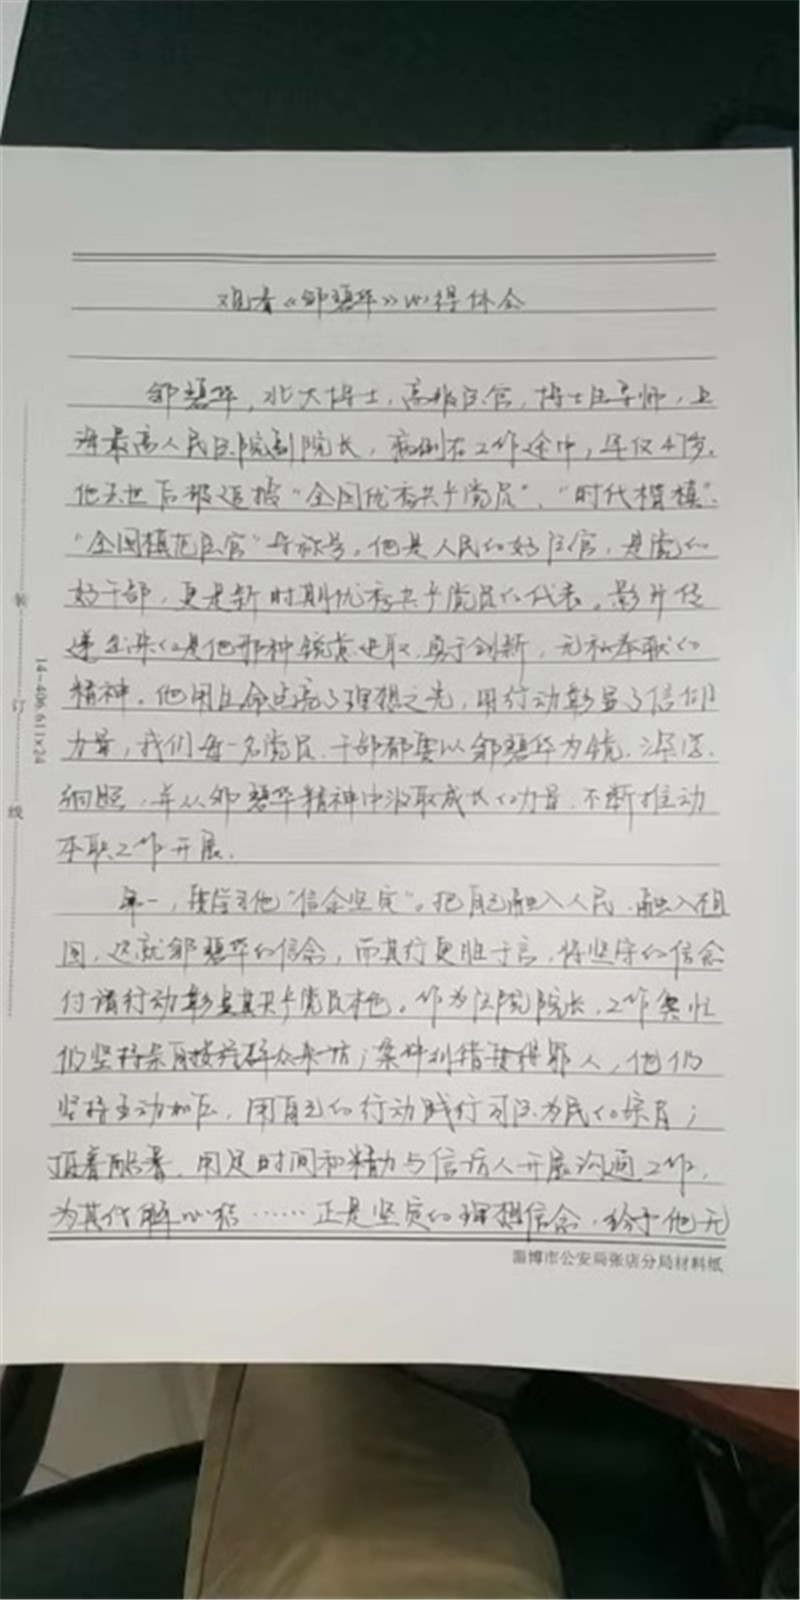 观看《邹碧华》心得体会
邹碧华，北大博士，高级法官，博士生导师，上
海最高人民法院副院长，病倒在工作途中，年仅47岁。
他去世后被追授“全国优秀共产党员”、“时代楷模”、
“全国模范法官”等称号。他是人民的好法官，是党的
好干部，更是新时期优秀共产党员的代表。影片传
递出来的是他那种锐意进取、勇于创新，无私奉献的
精神。他用生命点亮了理想之光，用行动彰显了信仰
力量，我们每一名党员、干部都要以邹碧华为镜，深学、
细照，并从邹碧华精神中汲取成长的力量，不断推动
本职工作开展。
第一，要学习他“信念坚定”。把自己融入人民、融入祖
国，这就邹碧华的信念，而其行更胜于言，将坚守的信念
付诸行动彰显其共产党员本色。作为法院院长，工作繁忙
仍坚持亲自接待群众来访；案件纠错要得罪人，他仍
坚持主动担压，用自己的行动践行司法为民的宗旨；
顶着酷暑，用足时间和精力与信访人开展沟通工作，
为其代解心结……正是坚定的理想信念，给予他无
装
订
线
14-406 611×24
淄博市公安局张店分局材料纸